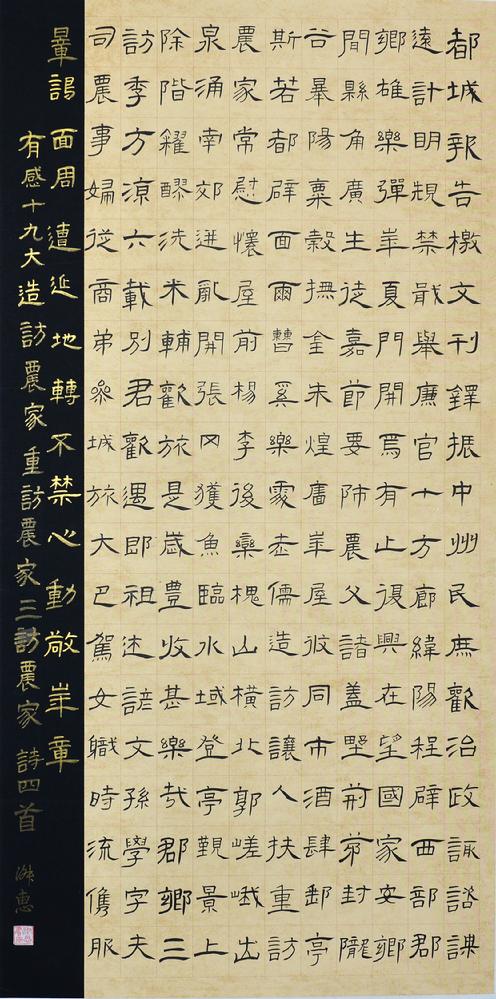 都城報告檄文刊鐸振中州民庶歡治政諏諮諜
遠計明規禁戢舉廉官十方廊緯陽程辟西部郡
鄉雄樂彈羊夏門開焉有止復興在望國家安鄉
閒縣角廣生徒嘉節要陟農父諸蓋墅荊茅封隴
谷暴陽粟穀撫金未煌羊屋彼同市酒肆郵亭
斯若都辟面爾瞽奚樂儒造訪讓人扶重訪
農家常慰懷屋前楊李後欒槐山橫北郭嵯峨出
泉涌南郊迸亂開張网獲魚臨水域登亭覲景上
除階糴醪洗米輔歡旅是歲豐收甚樂哉郡鄉三
訪季方涼六載別君歡遇即祖述諺文孫學字夫
司農事婦從商弟參城旅大巴駕女職時流雋服
面周遭延地轉不禁心動章
有感十九大造訪農家重訪農家三訪農家詩四首